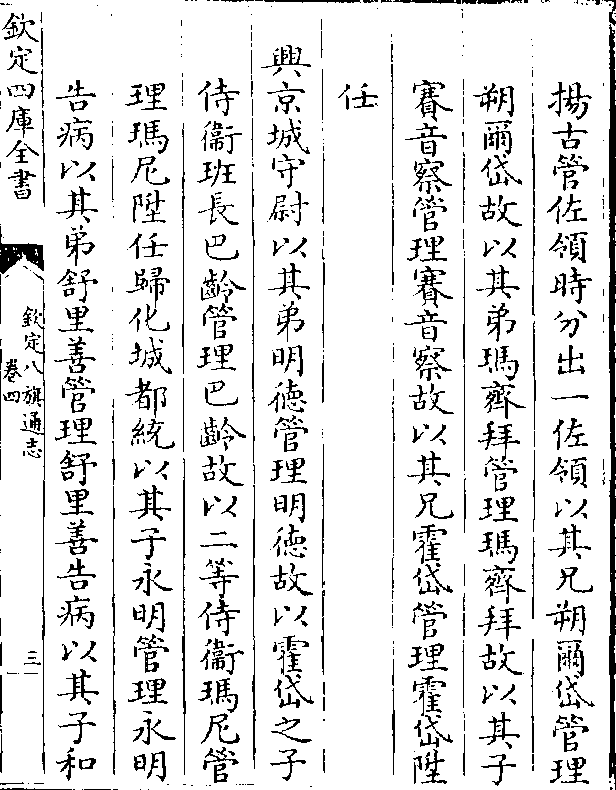 揚古管佐領時分出一佐領以其兄朔爾岱管理
朔爾岱故以其弟瑪齊拜管理瑪齊拜故以其子
賽音察管理賽音察故以其兄霍岱管理霍岱陞
任
興京城守尉以其弟明徳管理明徳故以霍岱之子
侍衞班長巴齡管理巴齡故以二等侍衞瑪尼管
理瑪尼陞任歸化城都統以其子永明管理永明
告病以其弟舒里善管理舒里善告病以其子和
欽定四庫全書
欽定八旗通志
卷四
三